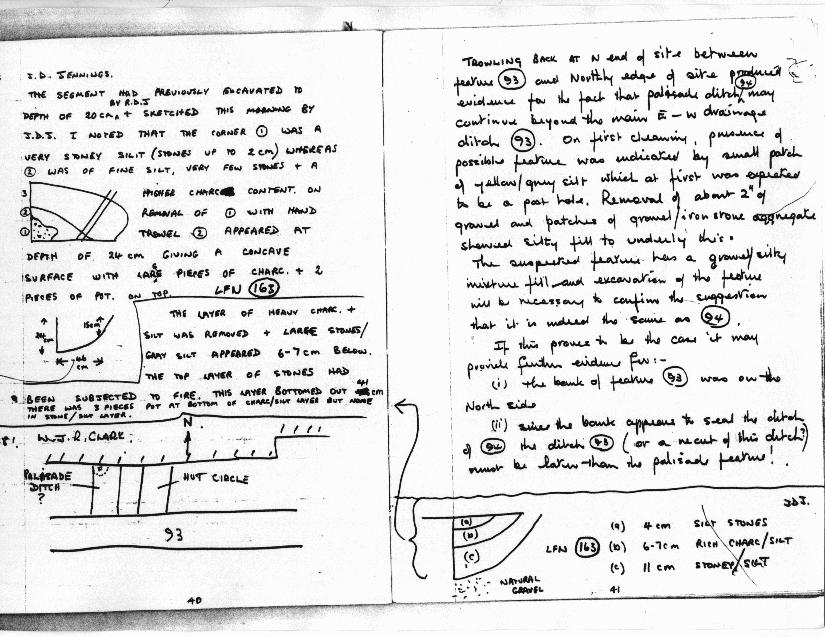 N
J.D. JENNINGS.
THE SEGMENT HAD PREVIOUSLY EXCAVATED TO
BY R.D.J
DEPTH OF 20cm + SKETCHED THIS MORNING BY
J.D.J. I NOTED THAT THE CORNER ① WAS A
VERY STONEY SILIT (STONES UP TO 2cm) WHEREAS
② WAS OF FINE SILT, VERY FEW STONES + A
HIGHER CHARC CONTENT. ON
REMOVAL OF ① WITH HAND
TROWEL ② APPEARED AT
3
2
1
DEPTH OF 24 cm GIVING A CONCAVE
SURFACE WITH LARGE PIECES OF CHARC. + 2
PIECES OF POT. ON TOP. LFN 163
THE LAYER OF HEAVY CHARC. +
SILT WAS REMOVED + LARGE STONES/
GRAY SILT APPEARED 6-7cm BELOW.
THE TOP LAYER OF STONES HAD
15cm
24 cm
46 cm
BEEN SUBJECTED TO FIRE. THIS LAYER BOTTOMED OUT 41 cm
THERE WAS 3 PIECES POT AT BOTTOM OF CHARC/SILT LAYER BUT NONE
IN STONE/SILT LAYER.
W.J.R. CLARK.
N
PALISADE
DITCH
?
HUT CIRCLE
93
40
TROWLING BACK AT N end of site between
feature 93 and Northly edge of site produced
evidence for the fact that palisade ditch 94 may
continue beyond the main E-W drainage
ditch 93. On first cleaning, presence of
possible feature was indicated by small patch
of yellow/grey silt which at first was expected
to be a post hole. Removal of about 2" of
gravel and patches of gravel/iron stone aggregate
showed silty fill to underly this.
The suspected feature has a gravel/silty
mixture fill and excavation of the feature
will be necessary to confirm the suggestion
that it is indeed the same as 94.
If this proves to be the case it may
provide further evidence for:-
(i) The bank of feature 93 was on the
North side
(ii) since the bank appears to seal the ditch
of 94 the ditch 93 (or a recut of this ditch?)
must be later than the palisade feature!
JDJ.
(a)
(b)
(c)
LFN 163
(a) 4 cm SILT STONES
(b) 6-7cm RICH CHARC/SILT
(c) 11 cm STONEY/SILT
NATURAL
GRAVEL
41